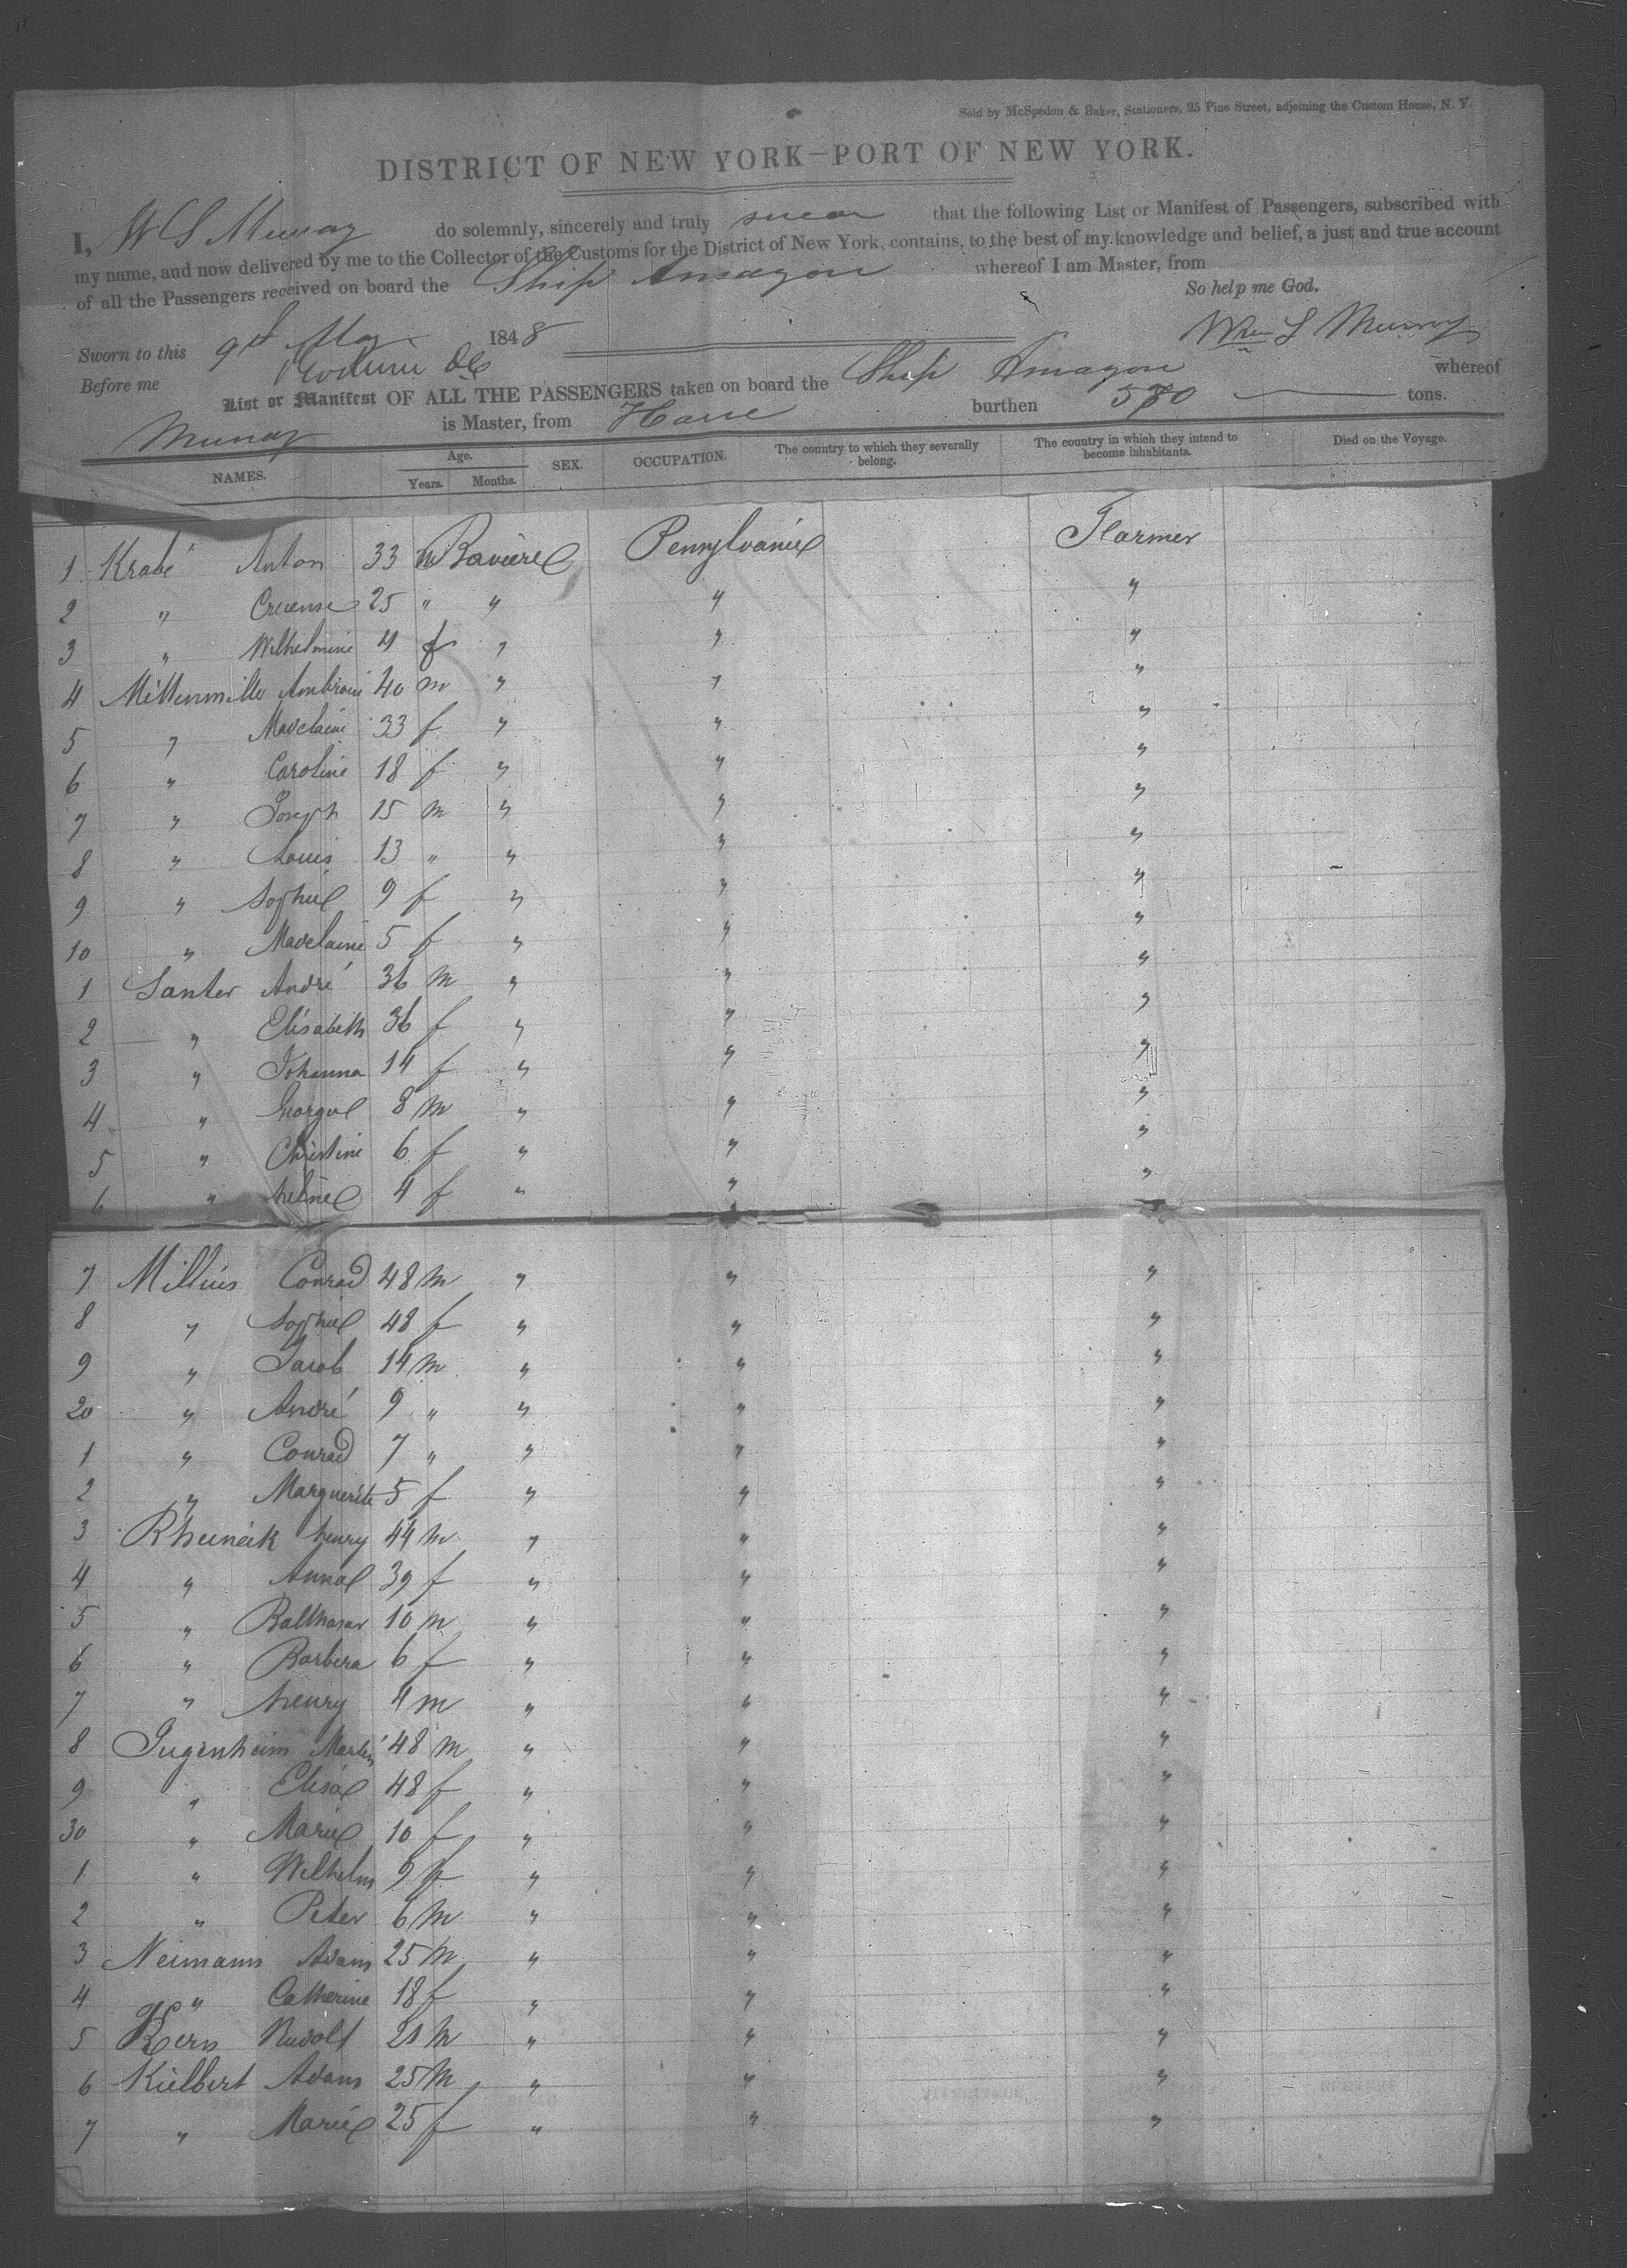 Sold by McSpedon & Baker, Stationers, 25 Pine Street, adjoining the Custom House, N. Y.
DISTRICT OF NEW YORK—PORT OF NEW YORK.
I, W S Murray do solemnly, sincerely and truly swear that the following List or Manifest of Passengers, subscribed with
my name, and now delivered by me to the Collector of the Customs for the District of New York, contains, to the best of my knowledge and belief, a just and true account
of all the Passengers received on board the Ship Amazon whereof I am Master, from
So help me God.
Sworn to this 9th May 1848 Wm S Murray
Before me
List or Manifest OF ALL THE PASSENGERS taken on board the Ship Amazon whereof
Murray is Master, from Havre burthen 580 tons.
NAMES. Age. Years. Months. SEX. OCCUPATION. The country to which they severally belong. The country in which they intend to become inhabitants. Died on the Voyage.
1 Krabé Anton 33 m Baviere Pennylvanie Farmer
2 " 25 " " " "
3 " Wilhelmine 4 f " " "
4 Mittenmiller Ambroise 40 m " " "
5 " Madelaine 33 f " " "
6 " Caroline 18 f " " "
7 " Joseph 15 m " " "
8 " Louis 13 " " " "
9 " Sophie 9 f " " "
10 " Madelaine 5 f " " "
1 Santer André 36 m " " "
2 " Elisabeth 36 f " " "
3 " Johanna 14 f " " "
4 " George 8 m " " "
5 " Christine 6 f " " "
6 " helne 4 f " " "
7 Millius Conrad 48 m " " "
8 " Sophie 48 f " " "
9 " Jacob 14 m " " "
20 " André 9 " " " "
1 " Conrad 7 " " " "
2 " Marguerite 5 f " " "
3 Rheineik henry 44 m " " "
4 " Anna 39 f " " "
5 " Balthasar 10 m " " "
6 " Barbera 6 f " " "
7 " henry 4 m " " "
8 Jugenheim Martin 48 m " " "
9 " Elisa 48 f " " "
30 " Marie 10 f " " "
1 " Wilhelm 9 f " " "
2 " Peter 6 m " " "
3 Neimann Adam 25 m " " "
4 " Catherine 18 f " " "
5 Kern Rudolf 21 m " " "
6 Kielbert Adam 25 m " " "
7 " Marie 25 f " " "